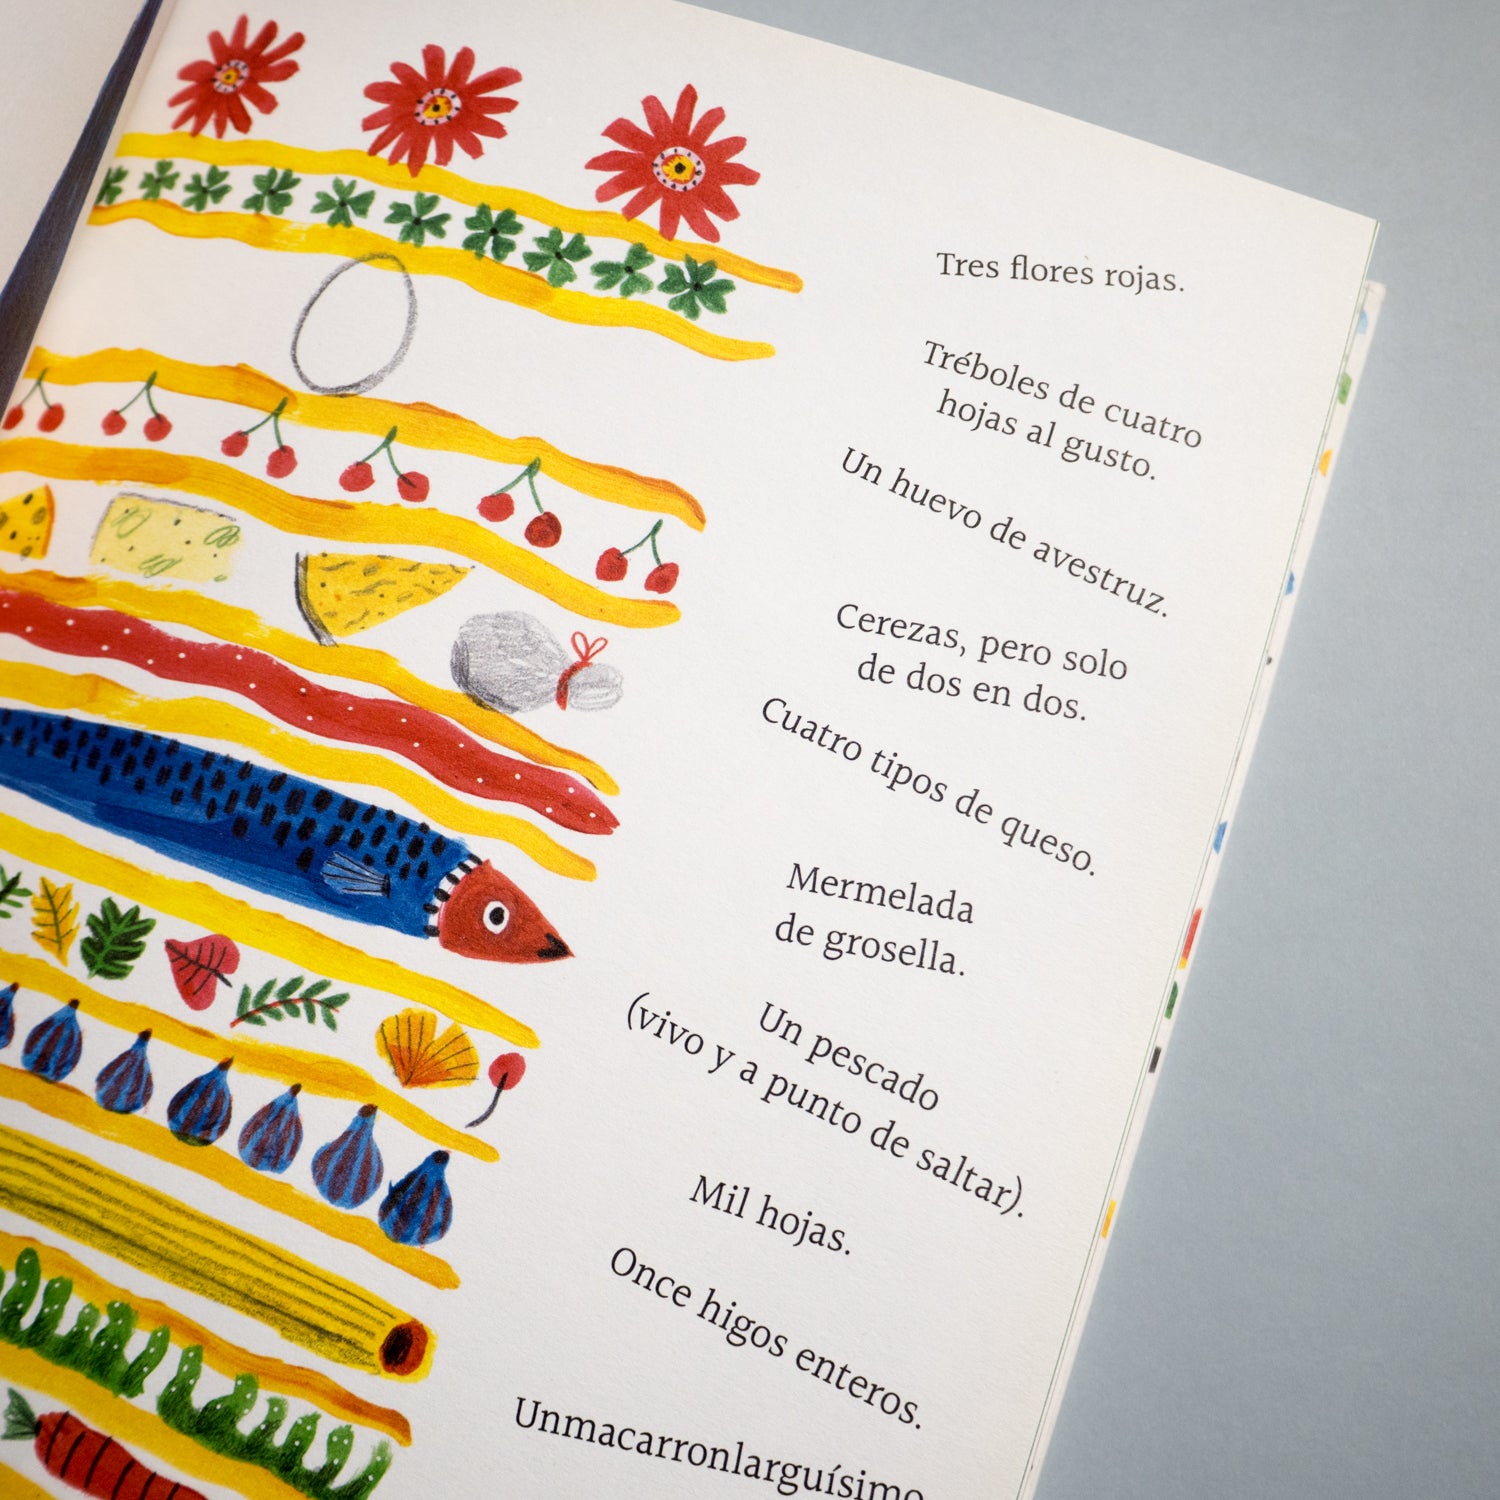 Tres flores rojas.
Tréboles de cuatro
hojas al gusto.
Un huevo de avestruz.
Cerezas, pero solo
de dos en dos.
Cuatro tipos de queso.
Mermelada
de grosella.
Un pescado
(vivo y a punto de saltar).
Mil hojas.
Once higos enteros.
Unmacarronlarguísimo